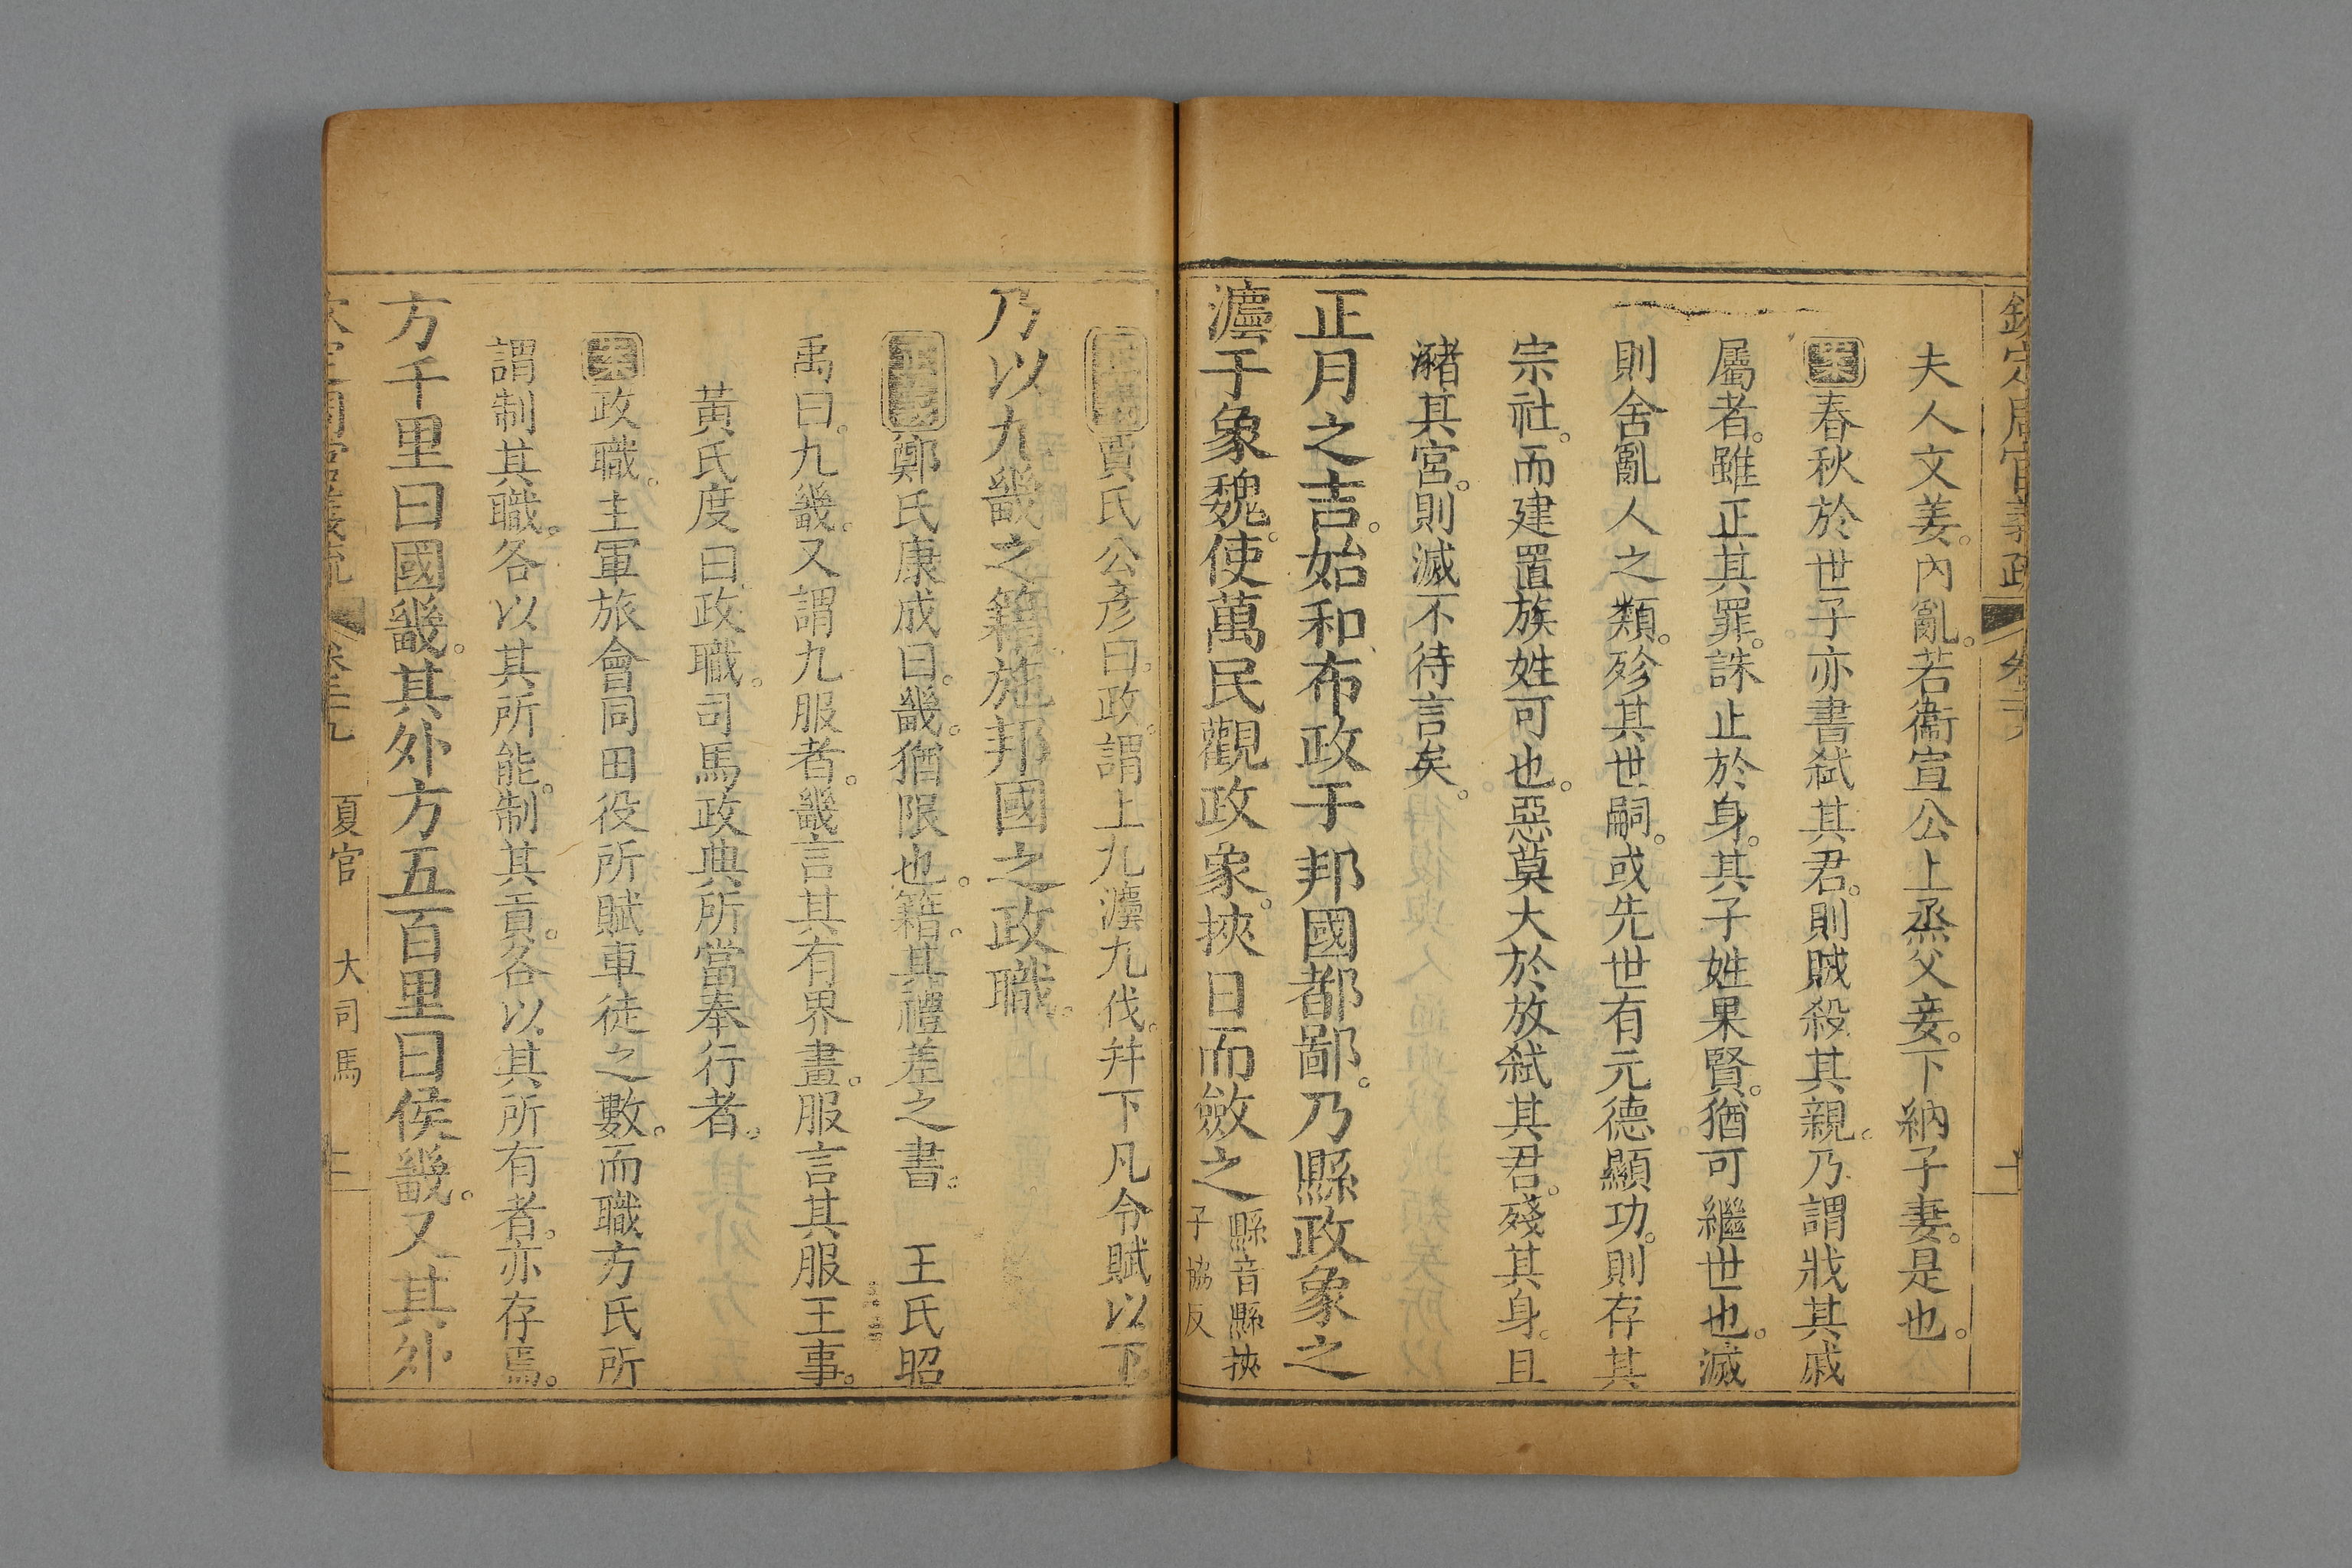 欽定周官義疏 卷二十九 十
夫人文姜。內亂。若衞宣公上烝父妾。下納子妻。是也。
案春秋於世子亦書弑其君。則賊殺其親。乃謂戕其戚
屬者。雖正其罪。誅止於身。其子姓果賢。猶可繼世也。滅
則舍亂人之類。殄其世嗣。或先世有元德顯功。則存其
宗社。而建置族姓可也。惡莫大於放弑其君。殘其身。且
瀦其宮。則滅不待言矣。
正月之吉。始和布政于邦國都鄙。乃縣政象之
灋于象魏。使萬民觀政象。挾日而斂之縣音縣挾
子協反
正義賈氏公彥曰。政。謂上九灋九伐。幷下凡令賦以下。
乃以九畿之籍。施邦國之政職。
正義鄭氏康成曰。畿。猶限也。籍。其禮差之書。 王氏昭
禹曰。九畿。又謂九服者。畿言其有界畫。服言其服王事。
黃氏度曰。政職。司馬政典所當奉行者。
案政職。主軍旅會同田役所賦車徒之數。而職方氏所
謂制其職。各以其所能。制其貢。各以其所有者。亦存焉。
方千里曰國畿。其外方五百里曰侯畿。又其外
卷二十九 夏官 大司馬